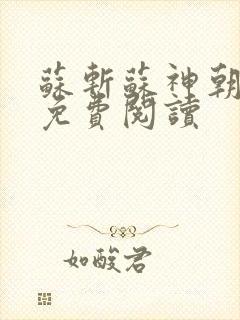 蘇斬蘇神朝
免費閱讀
如酸君